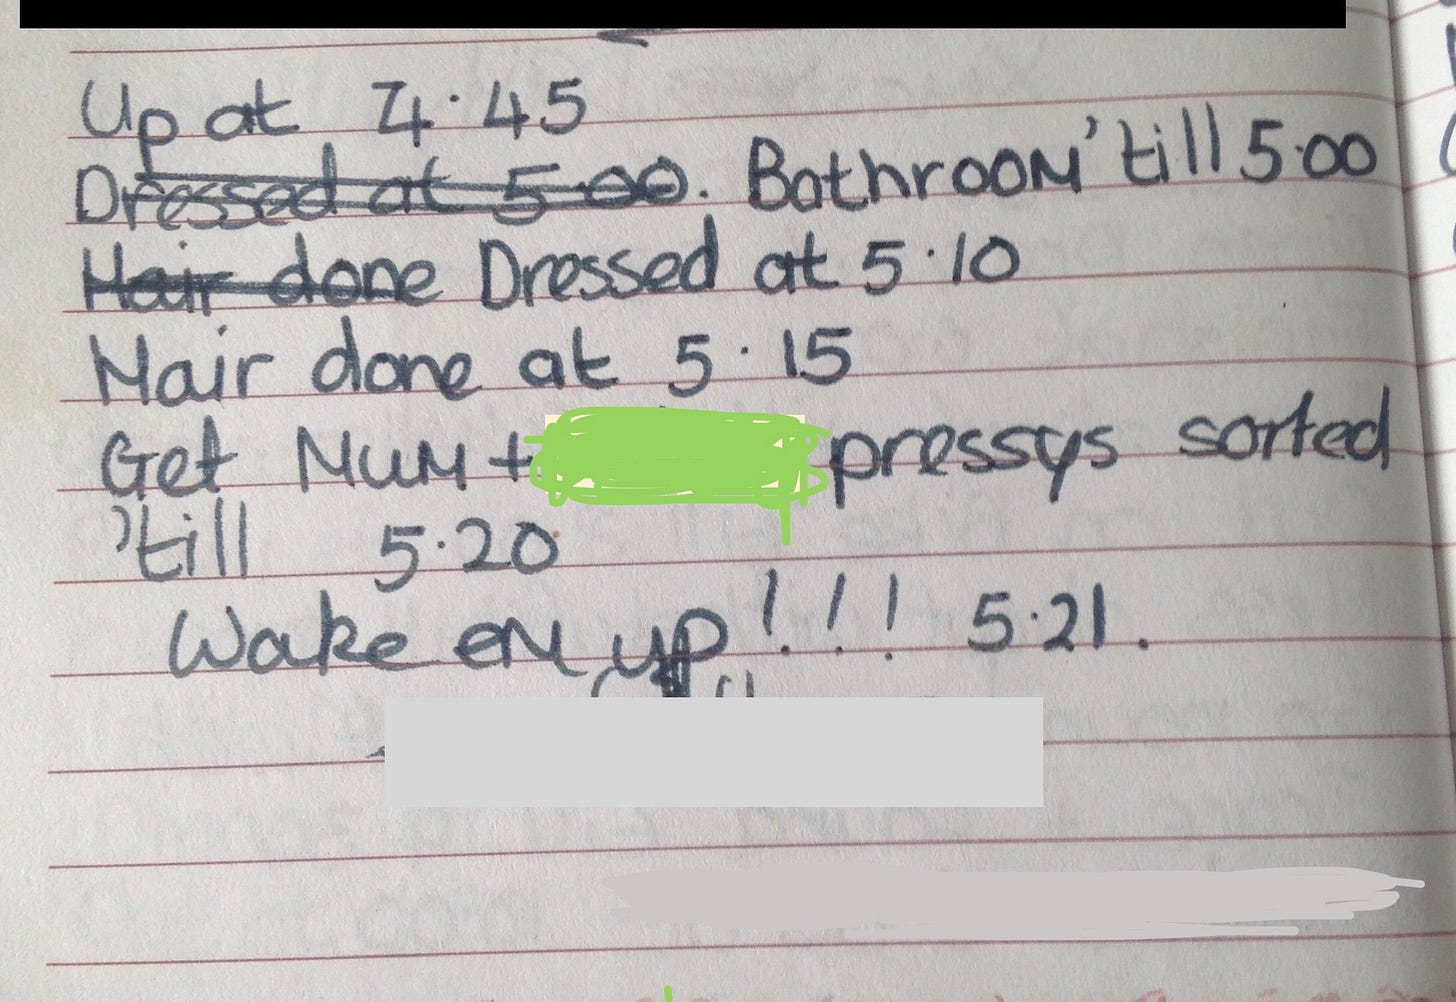 Up at 4.45
Dressed at 5.00. Bathroom 'till 5.00
Hair done Dressed at 5.10
Hair done at 5.15
Get Mum + pressys sorted
'till 5.20
Wake em up!!! 5.21.